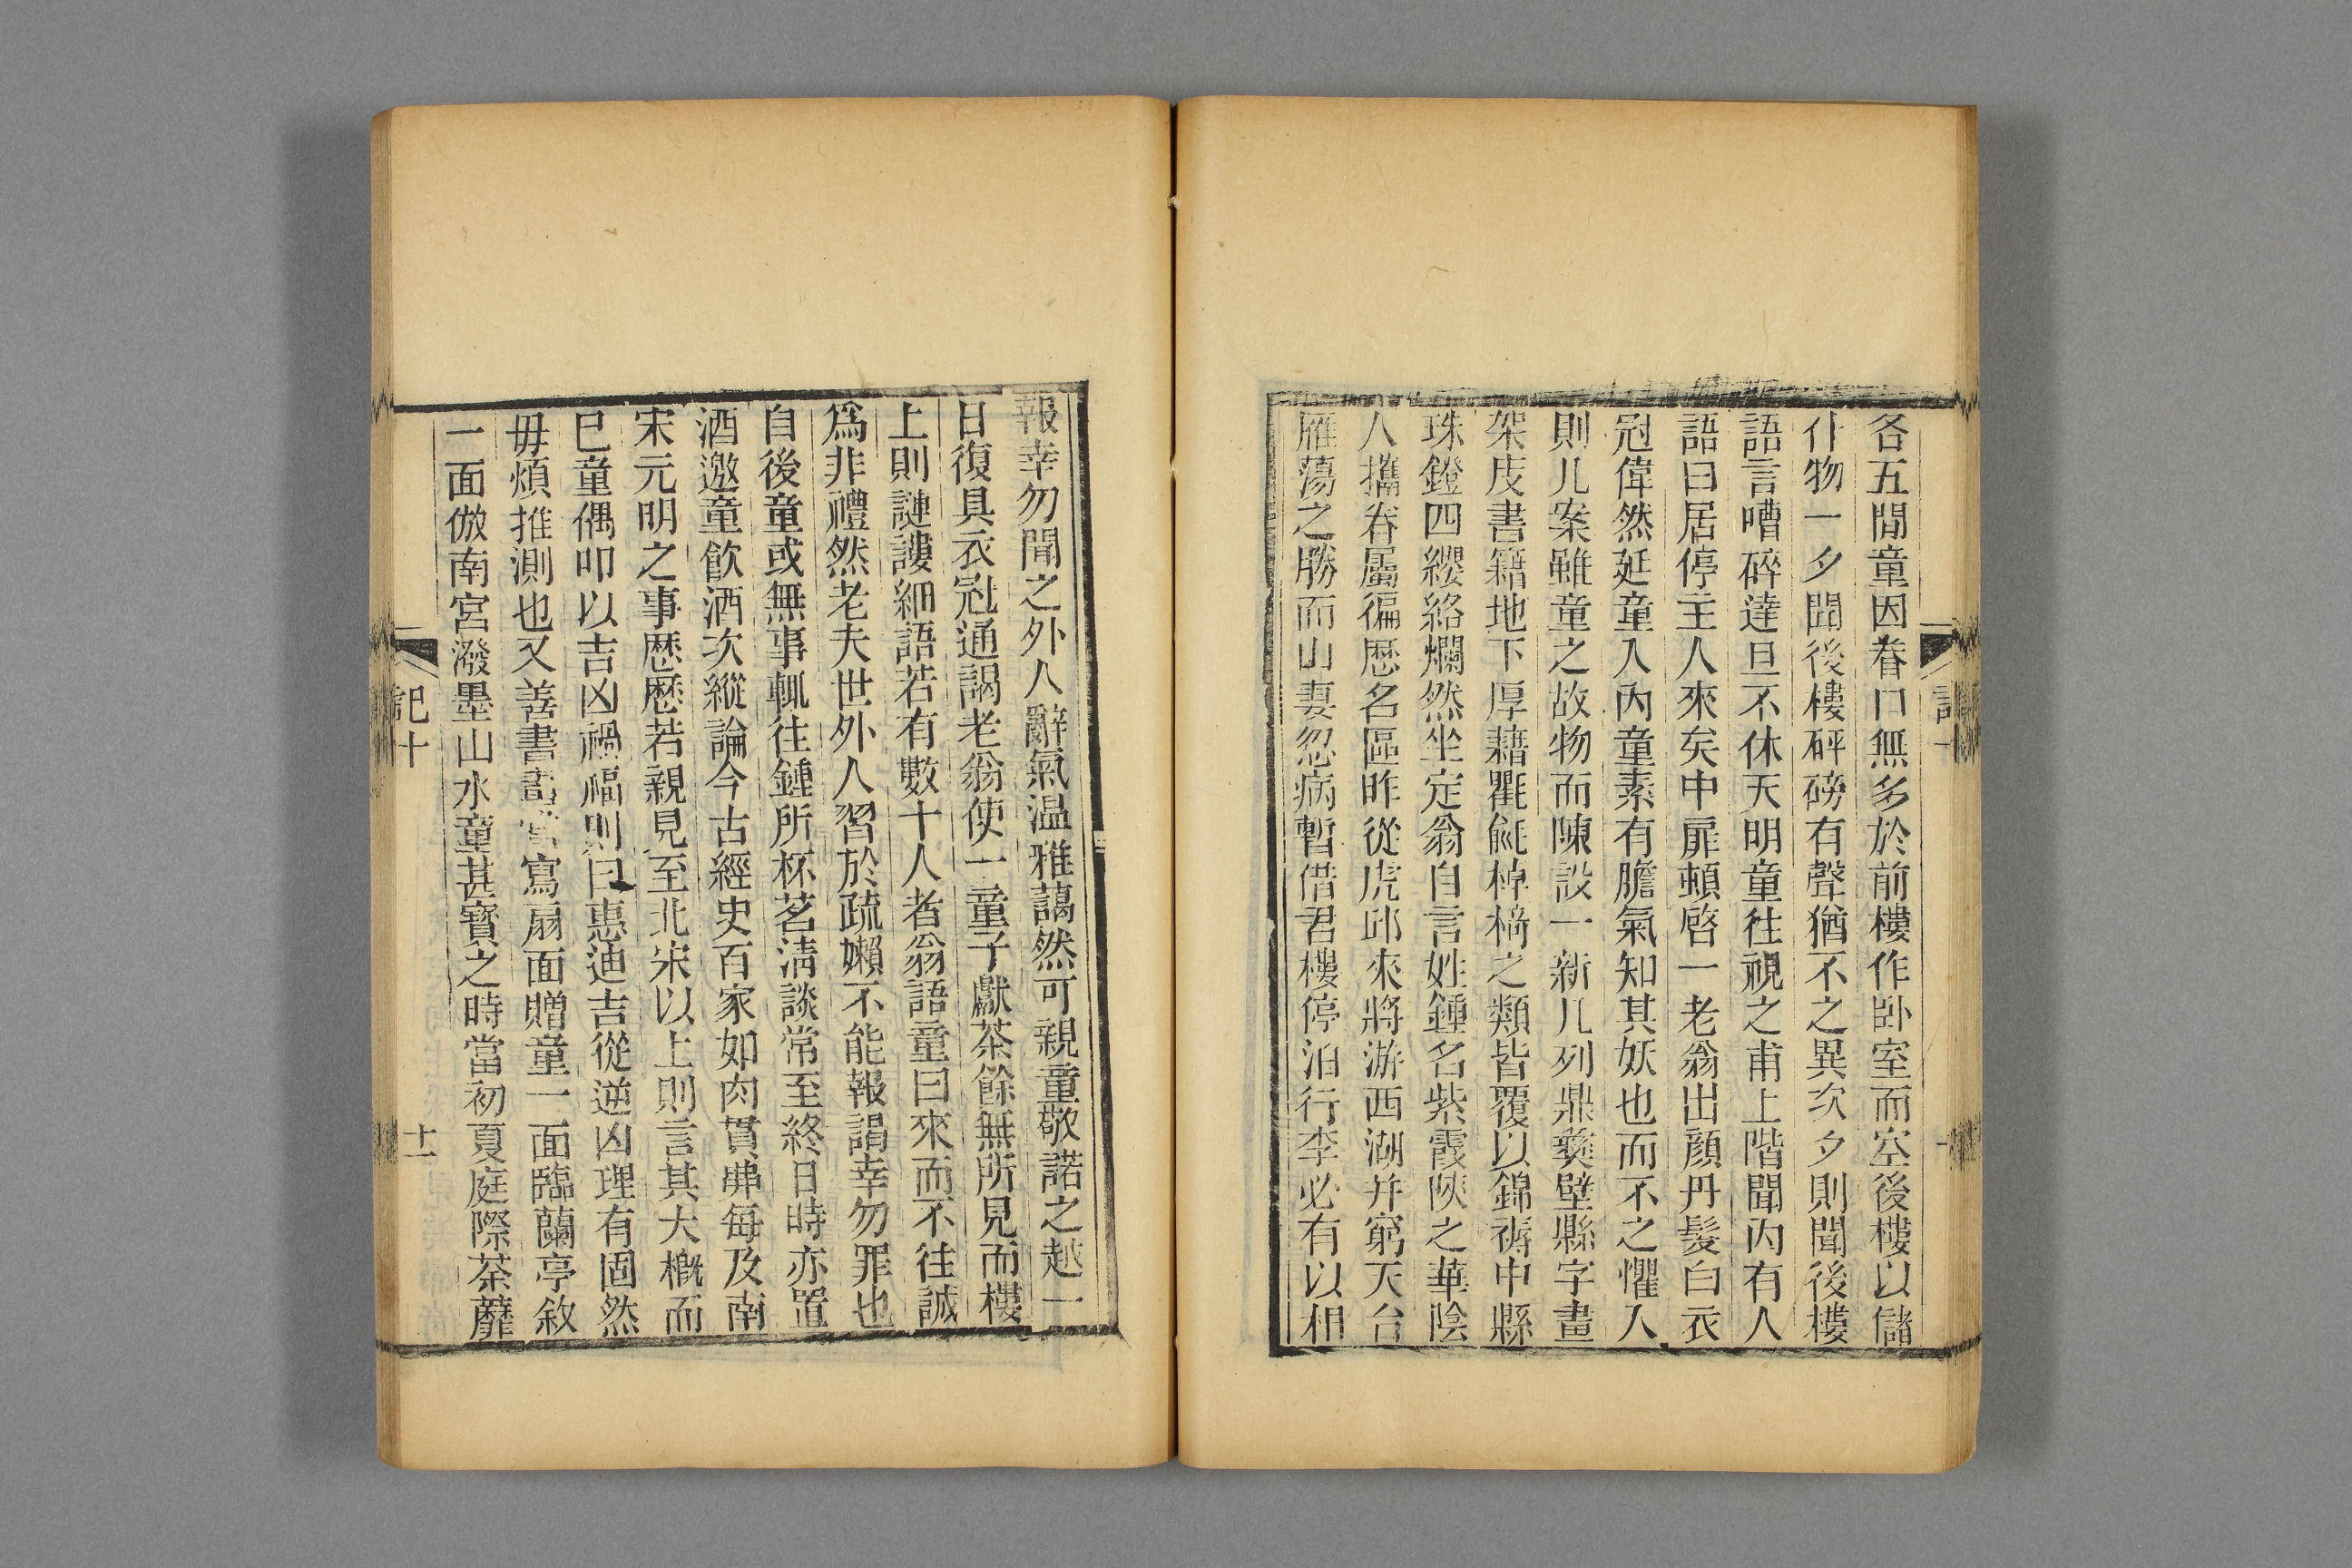 各五間童因眷口無多於前樓作卧室而空後樓以儲
什物一夕聞後樓砰磅有聲猶不之異次夕則聞後樓
語言嘈碎達旦不休天明童往視之甫上階聞內有人
語曰居停主人來矣中扉頓啓一老翁出顏丹髮白衣
冠偉然延童入內童素有膽氣知其妖也而不之懼入
則几案雖童之故物而陳設一新几列鼎彝壁縣字畫
架庋書籍地下厚藉氍毹椅之類皆覆以錦褥中縣
珠鐙四纓絡爛然坐定翁自言姓鍾名紫霞陝之華陰
人攜眷屬徧歷名區昨從虎邱來將游西湖并窮天台
雁蕩之勝而山妻忽病暫借君樓停泊行李必有以相
報幸勿聞之外人辭氣温雅藹然可親童敬諾之越一
日復具衣冠通謁老翁使一童子獻茶餘無所見而樓
上則謰謱細語若有數十人者翁語童曰來而不往誠
爲非禮然老夫世外人習於疏嬾不能報謁幸勿罪也
自後童或無事輒往鍾所杯茗淸談常至終日時亦置
酒邀童飮酒次縱論今古經史百家如肉貫弗每及南
宋元明之事歷歷若親見至北宋以上則言其大槪而
巳童偶叩以吉凶禍福則曰惠迪吉從逆凶理有固然
毋煩推測也又善書畫嘗寫扇面贈童一面臨蘭亭敘
一面倣南宮潑墨山水童甚寶之時當初夏庭際荼蘼
記十
十一